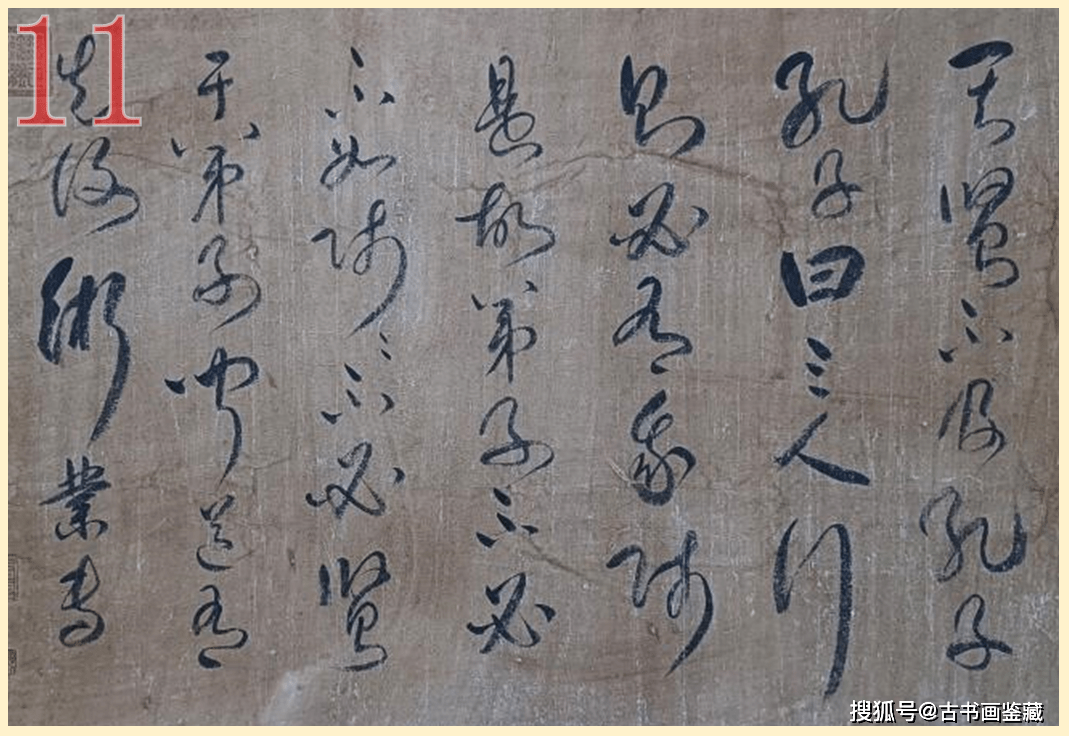 其賢不及孔子
孔子曰三人行
則必有我師
是故弟子不必
不如師〻不必賢
于弟子聞道有
先後術業專
11
搜狐号@古书画鉴藏